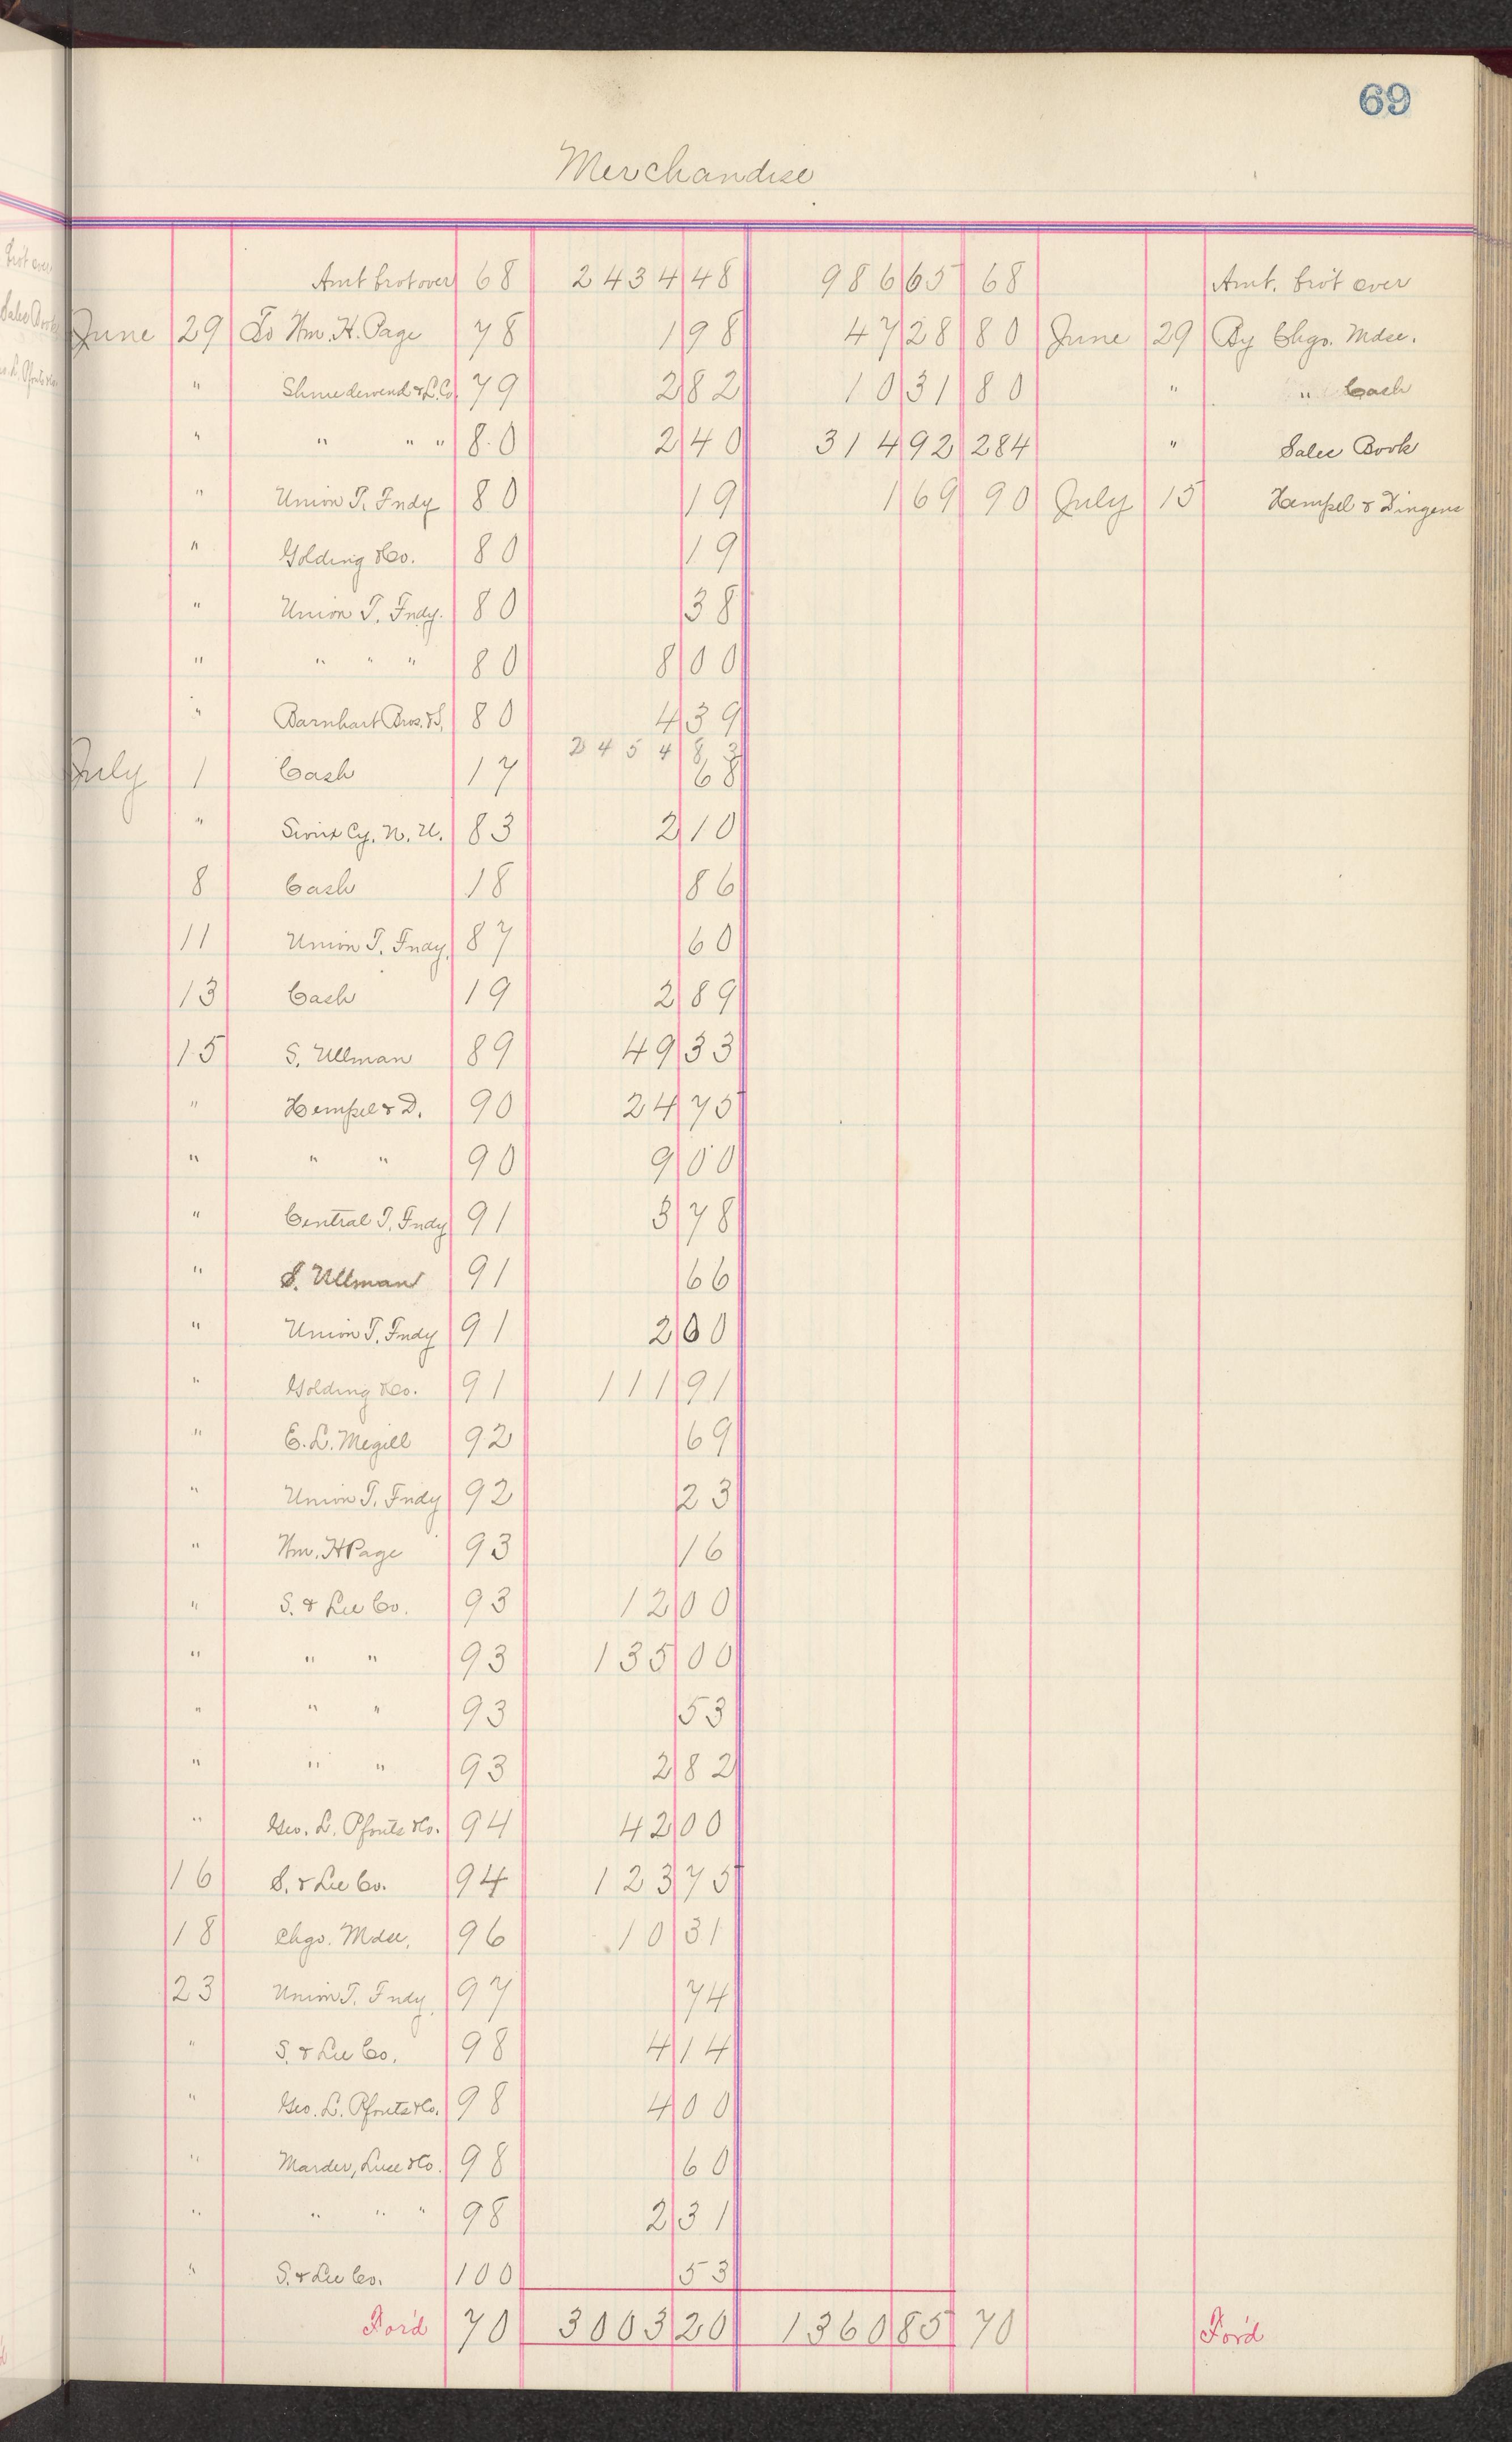 69
Merchandise
Amt brot over 68 2434 48 986 65 68 Amt. brot over
June 29 To Wm. H. Page 78 1 98 47 28 80 June 29 By Chgo. Mdse.
" Shniedewend & L. Co. 79 2 82 10 31 80 " " Cash
" " " " 80 2 40 314 92 284 " Sales Book
" Union T. Fndy 80 19 1 69 90 July 15 Hempel & Dingens
" Golding & Co. 80 19
" Union T. Fndy. 80 38
" " " " 80 8 00
" Barnhart Bros. & S. 80 4 39
2454 83
July 1 Cash 17 68
" Sioux Cy. N. U. 83 2 10
8 Cash 18 86
11 Union T. Fndy. 87 60
13 Cash 19 2 89
15 S. Ullman 89 49 33
" Hempel & D. 90 24 75
" " " 90 9 00
" Central T. Fndy 91 3 78
" S. Ullman 91 66
" Union T. Fndy 91 2 00
" Golding & Co. 91 111 91
" E. L. Megill 92 69
" Union T. Fndy 92 23
" Wm. H Page 93 16
" S. & Lee Co. 93 12 00
" " " 93 135 00
" " " 93 53
" " " 93 2 82
" Geo. L. Pfouts & Co. 94 42 00
16 S. & Lee Co. 94 123 75
18 Chgo. Mdse. 96 10 31
23 Union T. Fndy. 97 74
" S. & Lee Co. 98 4 14
" Geo. L. Pfouts & Co. 98 4 00
" Marder, Luse & Co. 98 60
" " " " 98 2 31
" S. & Lee Co. 100 53
For'd 70 3003 20 1360 85 70 For'd